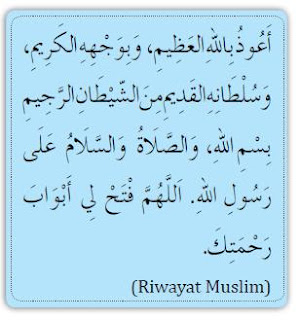 أَعُوذُ بِاللهِ العَظِيمِ، وَبِوَجْهِهِ الكَرِيمِ،
وَسُلْطَانِهِ القَدِيمِ مِنَ الشَّيْطَانِ الرَّجِيمِ
بِسْمِ اللهِ، وَالصَّلَاةُ وَالسَّلَامُ عَلَى
رَسُولِ اللهِ. اَللَّهُمَّ فْتَحْ لِي أَبْوَابَ
رَحْمَتِكَ.
(Riwayat Muslim)